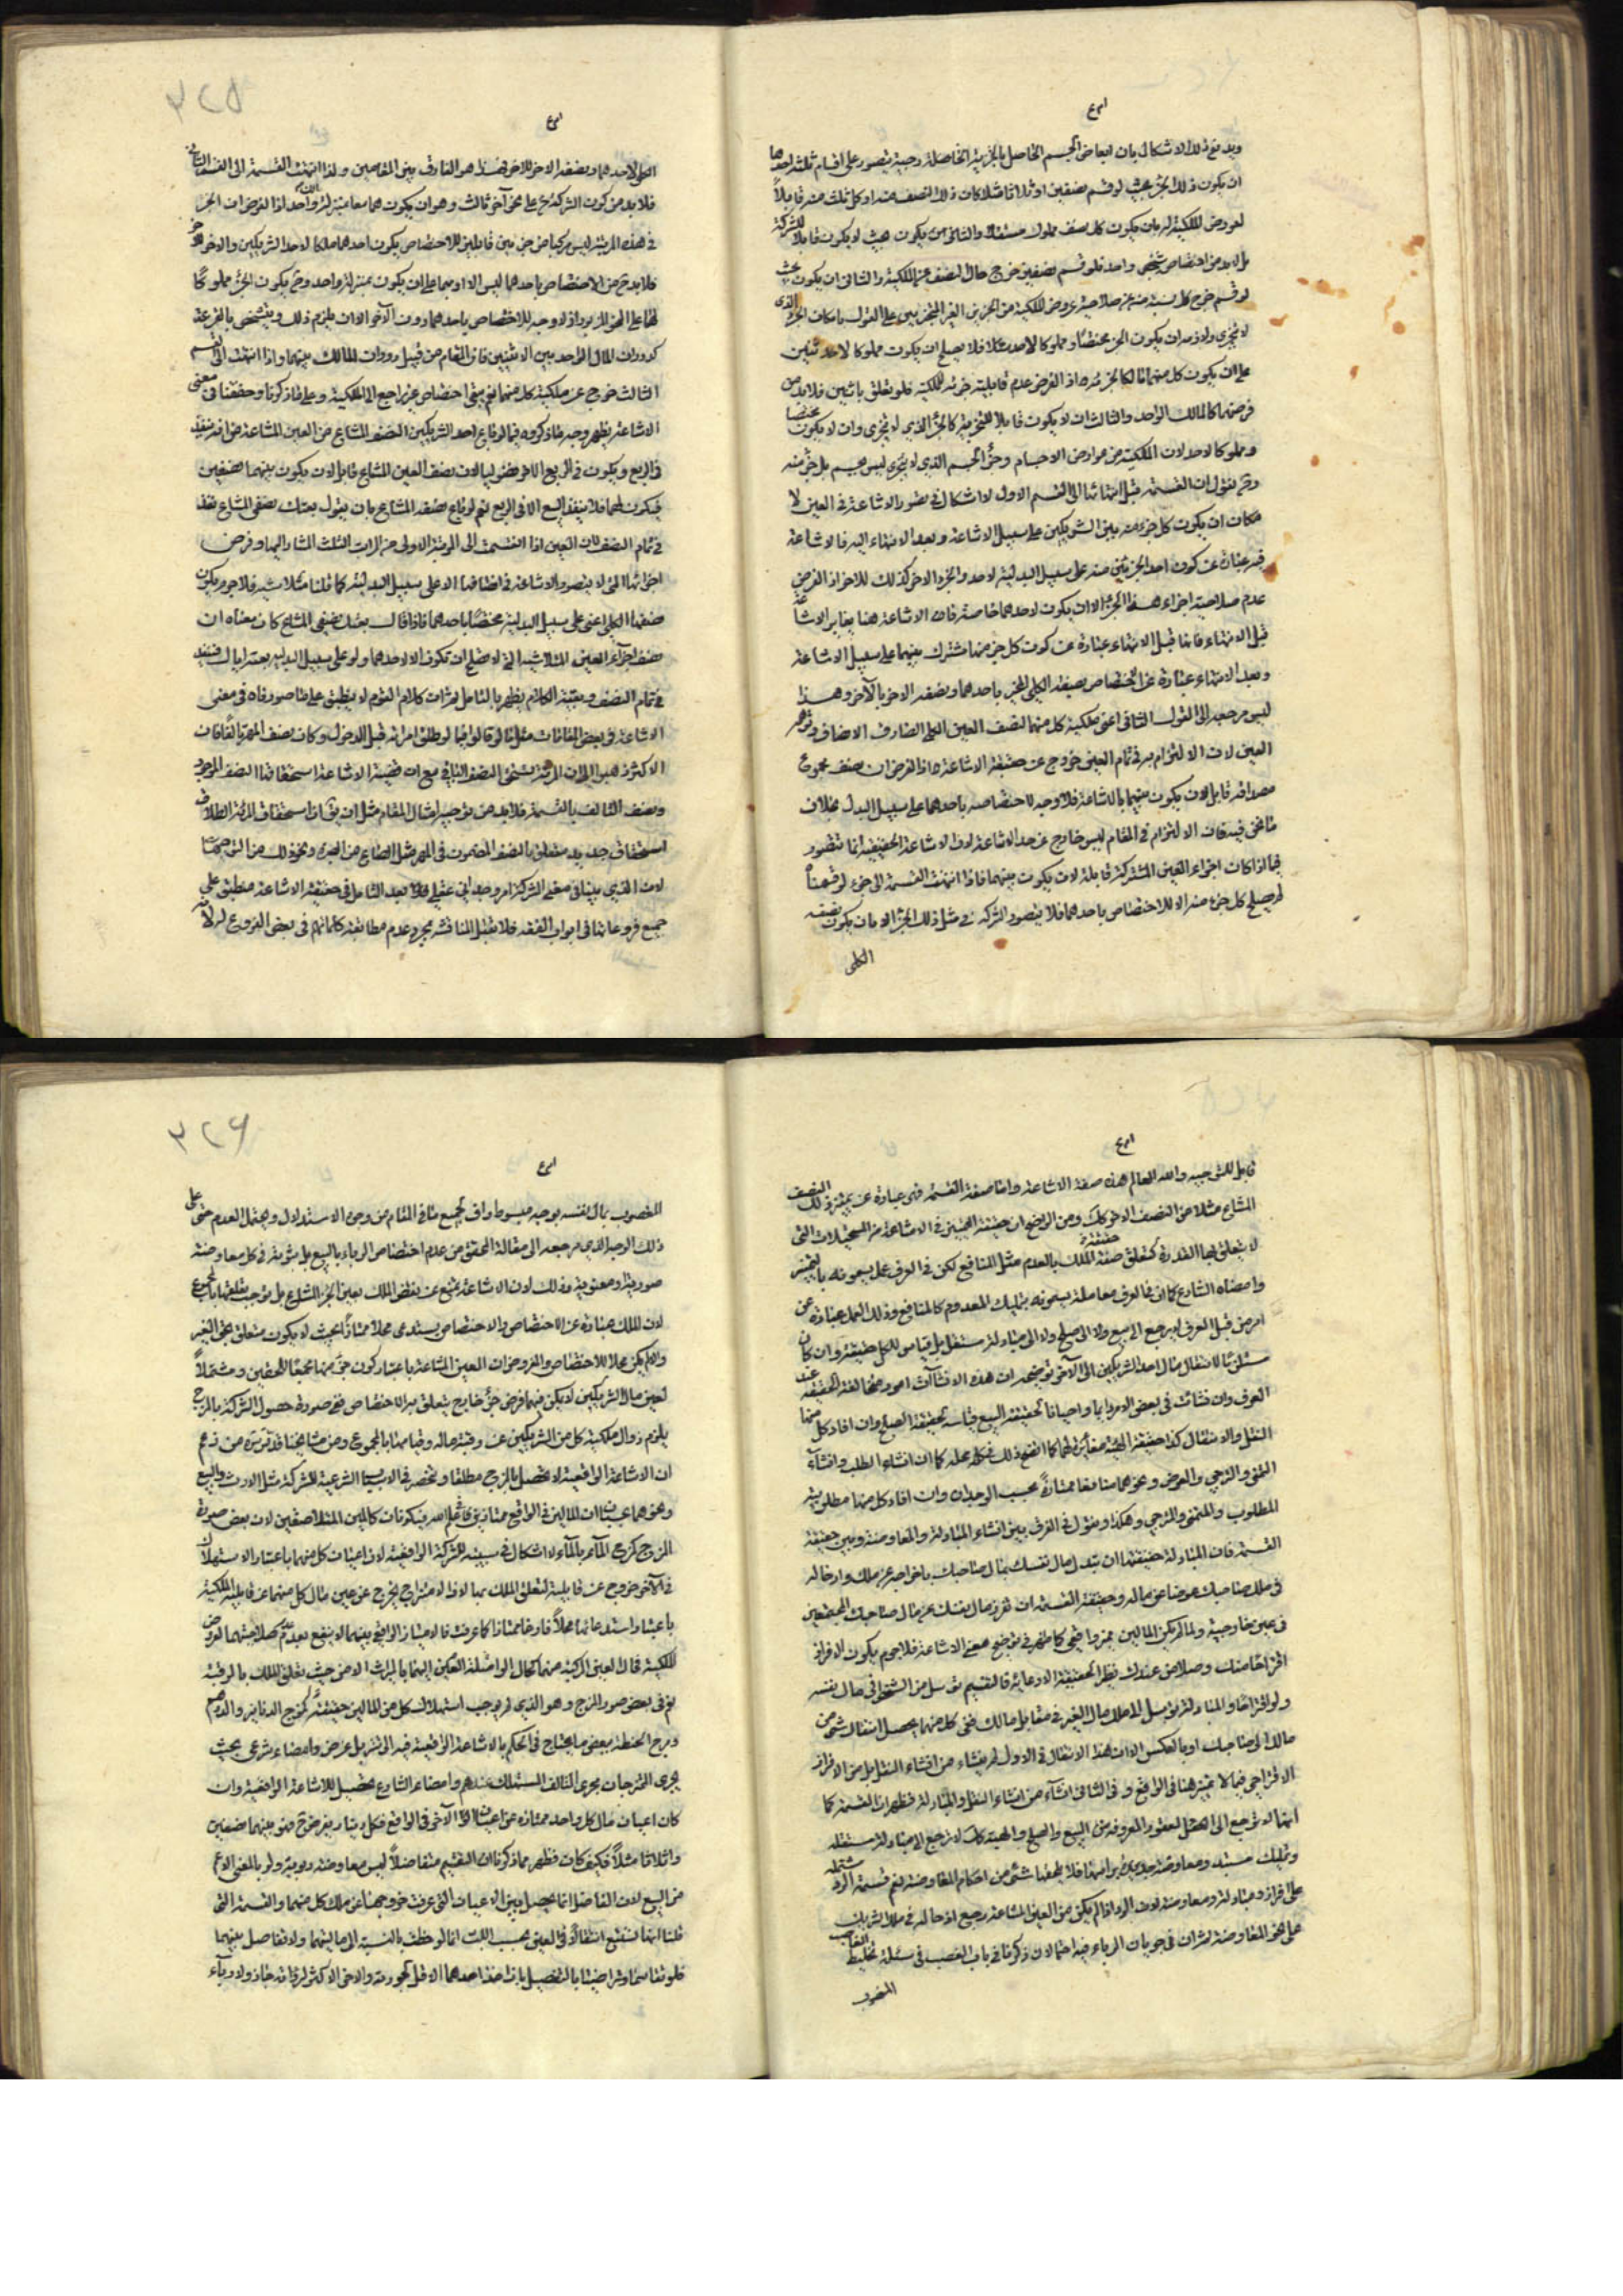 ويدفع ذلك الاشكال بان ابعاض الجسم الحاصل بالجزئية الخاصلة يتصور على اقسام ثلثة احدها
ان يكون ذلك الجزء بحيث لو قسم نصفين او ثلاثا مثلا كان ذلك النصف منه او كل ثلث منه قابلاً
لعروض الملكية له بان يكون كل نصف مملوك مستقلا والثانى ان يكون بحيث لا يكون قابلا للشركة
بل لابد من اختصاص شخص واحد فلو قسم نصفين خرج حال النصف عن الملكية والثالث ان يكون بحيث
لو قسم خرج كل عن صلاحية عروض الملكية من الجزئين الغير المتجزيين على القول بامكان الجزء الذى
لا يتجزى ولازمه ان يكون الجزء مختصاً ومملوكا لاحد مثلا فلا يصلح ان يكون مملوكا لاحد اثنين
على ان يكون كل منهما مالكا لجزئه اذ الفرض عدم قابلية جزئه للملكية فلو تعلق باثنين فلابد من
فرضهما كالمالك الواحد والثالث ان لا يكون قابلا للتجزية كالجزء الذى لا يتجزى وان لا يكون مختصا
ومملوكا لاحد لان الملكية من عوارض الاجسام وجزء الجسم الذى لا يتجزى ليس بجسم بل جزء منه
وح نقول ان القسمة قبل انتهائها الى القسم الاول لا اشكال فى تصور الاشاعة فى العين لا
مكان ان يكون كل جزء منه بين الشريكين على سبيل الاشاعة وبعد الانتهاء اليه فالاشاعة
فيه عبارة عن كون احد الجزئين منه على سبيل البدلية لاحد والجزء الاخر كذلك للاخر اذ الفرض
عدم صلاحية اجزاء هذا الجزء الا ان يكون لاحدهما خاصة فان الاشاعة هنا يغاير الاشاعة
قبل الانتهاء فانها قبل الانتهاء عبارة عن كون كل جزء منها مشترك بينهما على سبيل الاشاعة
وبعد الانتهاء عبارة عن اختصاص نصفه الكلى الجزء باحدهما ونصفه الاخر بالآخر وهذا
ليس مرجعه الى القول الثانى اعنى ملكية كل منهما لنصف العين الكلى الصادق
العين لان الالتزام به فى تمام العين خروج عن حقيقة الاشاعة اذ الفرض ان نصف مجموع
مصداقه قابل لان يكون بينهما بالاشاعة فلا وجه لاختصاصه باحدهما على سبيل البدل بخلاف
ما نحن فيه فان الالتزام فى المقام ليس خارج عن حد الاشاعة لان الاشاعة الحقيقية انما يتصور
فيما اذا كان اجزاء العين المشتركة قابلة لان يكون بينهما فاذا انتهت القسمة الى جزء لو قسمناه
لم يصلح كل جزء منه الا للاختصاص باحدهما فلا يتصور الشركة فى مثل ذلك الجزء الا بان يكون نصفه
الكلى
٣٢٥
الكلى لاحدهما ونصفه الاخر للاخر فهذا هو الفارق بين المقامين ولذا انتهت القسمة الى القسم الثانى
فلابد من كون الشركة ح على نحو آخر ثالث وهو ان يكون هما معا بمنزلة واحد اذ الفرض ان الجزء
فى هذه المرتبة ليس مركبا من جزئين قابلين للاختصاص يكون احدهما ملكا لاحد الشريكين والاخر للاخر
فلابد ح من الاختصاص باحدهما ليس الا او بهما على ان يكون بمنزلة واحد وح يكون الجزء مملوكا
لهما على اذ لا وجه للاختصاص باحدهما دون الآخر الا ان يلزم ذلك ويشخص بالقرعة
كدوران المال الواحد بين الاثنين فان المقام من قبيل دوران المالك بينهما واذا انتهت الى القسم
الثالث خرج عن ملكية كل منهما نعم يبقى اختصاص غير راجع الى الملكية وعلى ما ذكرنا وحققنا فى معنى
الاشاعة يظهر وجه ما ذكروه فيما لو باع احد الشريكين النصف المشاع من العين المشاعة من انه ينفذ
فى الربع ويكون فى الربع الاخر فضوليا لان نصف العين المشاع قابل لان يكون بينهما نصفين
فيكون لهما فلا ينفذ البيع الا فى الربع نعم لو باع نصفه المشاع بان يقول بعتك نصفى المشاع نفذ
فى تمام النصف لان العين اذا انقسمت الى المرتبة الاولى من المراتب الثلث المشار اليها وفرض
اجزائها التى لا يتصور الاشاعة فى انصافها الا على سبيل البدلية كما قلنا مثلا ستة فلا جرم يكون
نصفها الكلى اعنى على سبيل البدلية مختصاً باحدهما فاذا قال بعتك نصفى المشاع كان معناه ان
نصف اجزاء العين التى لا تصلح ان تكون الا لاحدهما ولو على سبيل البدلية بعته اياك فينفذ
فى تمام النصف وتتمة الكلام يظهر بالتامل ثم ان كلام القوم لا ينطبق على ما صورناه فى معنى
الاشاعة فى بعض المقامات مثل ما لو قالوا فيما لو طلق امرأته قبل الدخول وكان نصف المهر تالفا فان
الاكثر ذهبوا الى ان المرئة تستحق النصف الباقى مع ان قضية الاشاعة استحقاقها النصف الموجود
ونصف التالف بالقيمة فلابد من توجيه امثال المقام مثل ان يق ان استحقاق المرئة الطلاق
استحقاق جديد متعلق بالنصف المضمون فى المهر مثل الصاع من الصبرة ونحو ذلك من التوجيهات
لان الذى بينا فى معنى الشركة امر وجدانى عقلى فلا بعد التامل فى حقيقة الاشاعة منطبق على
جميع فروعاتها فى ابواب الفقه فلا تقبل المناقشة بمجرد عدم مطابقة كلماتهم فى بعض الفروع له لانه
قابل للتوجيه والله العالم هذه صفة الاشاعة واما صفة القسمة فهى عبارة عن تميز ذلك النصف
المشاع مثلا من النصف الاخر كك ومن الواضح ان حقيقة التميز فى الاشاعة من المستحيلات التى
لا يتعلق بها القدرة كتعلق صفة الملك حقيقة بالعدم مثل المنافع لكن فى العرف عمل يسمونه بالتميز
وامضاه الشارع كما ان فى العرف معاملة يسمونه بتمليك المعدوم كالمنافع وذلك العمل عبارة عن
امر من قبل العرف لا يرجع الى بيع ولا الى صلح ولا الى مبادلة مستقل بل يباين للكل حقيقة وان كان
مستلزما لانتقال مال احد الشريكين الى الآخر توضيحه ان هذه الانشاآت امور متخالفة الحقيقة عند
العرف وان تشاركت فى بعض الامور احيانا فحقيقة البيع مباينة لحقيقة الصلح وان افاد كل منهما
النقل والانتقال كذا حقيقة الهبة مغايرة لهما كما اتضح ذلك فى محله كما ان انشاء الطلب وانشاء
التمنى والترجى والعرض ونحوهما متباينا ممتازة بحسب الوجدان وان افاد كل منها مطلوبية
المطلوب والمتمنى والمترجى وهكذا ونقول فى الفرق بين انشاء المبادلة والمعاوضة وبين حقيقة
القسمة فان المبادلة حقيقتها ان تبدل مال نفسك بمال صاحبك باخراجه عن ملكه وادخاله
فى ملك صاحبك عوضا عن ماله وحقيقة القسمة ان تفرز مال نفسك عن مال صاحبك المجتمعين
فى عين خارجية ولما لم يكن المالين تميز واقعى كما ظهر فى توضيح معنى الاشاعة فلا جرم يكون الافراز
اقتراحا منك وصلا من عندك نظير الحقيقة الادعائية فالتقسيم توسل من الشخص الى مال نفسه
ولو اقتراحا والمبادلة توسل الى ملك مال الغير فى مقابل مالك ففى كل منهما يحصل انتقال شئ من
مالك الى صاحبك او بالعكس الا ان هذا الانتقال فى الاول لم ينشاء من انشاء النقل بل من الافراز
الاقتراحى فيما لا تميز هنا فى الواقع وفى الثانى انشاء من انشاء النقل والمبادلة فظهر ان القسمة كما
انها لا ترجع الى العقود المعروفة من البيع والصلح والهبة كك لا ترجع الى مبادلة مستقلة
وتمليك مستبد ومعاوضة جديدة براسها فلا يلحقها شئ من احكام المعاوضة نعم قسمة الرد مشتملة
على افراز ومبادلة ومعاوضة لان الرد اذا لم يكن من العين المشاعة رجع ادخاله فى ملك الشريك
على نحو المعاوضة ثم ان فى جريان الرباء فيه احتمالان ذكرنا فى باب الغصب فى مسئلة تخليط الغاصب
المغصوب
٣٢٦
المغصوب بمال نفسه بوجه مبسوط واف لجميع ما فى المقام من وجوه الاستدلال ويحتمل العدم حتى على
ذلك الوجه الذى مرجعه الى مقالة المحقق من عدم اختصاص الرباء بالبيع بل ثبوته فى كل معاوضة
صورية او معنوية وذلك لان الاشاعة تمنع عن تعلق الملك بعين الجزء المشاع بل توجب تعلقهما بالمجموع
لان الملك عبارة عن الاختصاص والاختصاص يستدعى محلا ممتازاً بحيث لا يكون متعلق بحق الغير
والا لم يكن محلا للاختصاص والمفروض ان العين المشاعة باعتبار كون جزء منها مجمعا للحقين ومشتملاً
لعين مال الشريكين لم يكن فيهما فرض جزء خارج يتعلق به الاختصاص ففى صورة حصول الشركة بالمزج
يلزم زوال ملكية كل من الشريكين عن رقبة ماله وقيامها بالمجموع ومن مشايخنا قدس سره من زعم
ان الاشاعة الواقعية لا تحصل بالمزج مطلقا وتنحصر فى الاسباب الشرعية للشركة مثل الارث والبيع
ونحوهما ان المالين فى الواقع ممتازين فى علم الله فيكونان كالمالين المتلاصقين لان بعض صورة
المزج كمزج الماء بالماء لا اشكال فى سببيته للشركة الواقعية لان اعيان كل منهما باعتبار الاستهلاك
فى الآخر خرج عن قابلية تعلق الملك بها لان الامتزاج يخرج عين مال كل منهما عن قابلية الملكية
باعتبار استدعائها محلاً فارغا ممتازا كما عرفت فالامتياز الواقعى بينهما لا ينفع بعد عدم صلاحيتهما لعروض
الملكية فان العين المركبة منهما كحال الواصلة العين اليهما بالميراث الا من حيث تعلق الملك بالرقبة
نعم فى بعض صور المزج وهو الذى لم يوجب استهلاك كل من المالين حقيقة كمزج الدنانير والدراهم
ومزج الحنطة ببعض ما يحتاج فى الحكم بالاشاعة الواقعية فيه الى تنزيل عرفى وامضاء شرعى بحيث
يجرى الممتزجان مجرى التالف المستهلك عندهم وامضاء الشارع تحصيل للاشاعة الواقعية وان
كان اعيان مال كل واحد ممتازة عن اعيان مال الآخر فى الواقع فكل دينار يفرض فهو بينهما نصفين
واثلاثا مثلاً فكيف كان فظهر مما ذكرنا ان التقسيم متفاضلاً ليس معاوضة ربوية ولو بالمعنى الاعم
من البيع لان التفاضل انما يحصل بين الاعيان التى عرفت خروجها عن ملك كل منهما والقسمة التى
قلنا انها تستتبع انتقالاً فى العين بحسب اللب انما لوحظت بالنسبة الى ماليتهما ولا تفاضل بينهما
فلو تقاسما وتراضيا بالتفضيل بان اخذ احدهما الاقل لجودته والاخر الاكثر لرداءته جاز ولا رباء